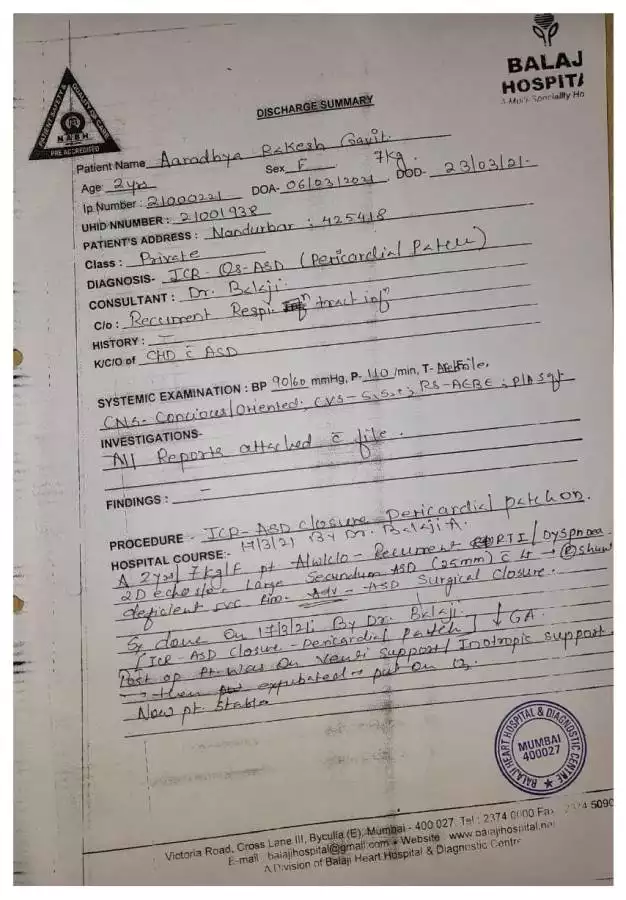 BALAJ
HOSPITA
A Multi Speciality Ho
PATIENT SAFETY & QUALITY OF CARE
NABH
PRE ACCREDITED
DISCHARGE SUMMARY
Patient Name Aaradhya Rakesh Gavit.
Age: 2yrs Sex F 7kg.
Ip Number: 21000221 DOA- 06/03/2021 DOD- 23/03/21.
UHID NNUMBER: 21001938
PATIENT'S ADDRESS: Nandurbar: 425418
Class: Private
DIAGNOSIS- ICR-OS-ASD (Pericardial Patch)
CONSULTANT: Dr. Balaji.
C/o: Recurrent Respi. tract infn
HISTORY: -
K/C/O of CHD c̄ ASD
SYSTEMIC EXAMINATION: BP 90/60 mmHg, P- 110 /min, T- Afebrile.
CNS- Concious/Oriented, CVS- S1S2+, RS-AEBE; P/A Soft
INVESTIGATIONS-
All Reports attached c̄ file.
FINDINGS: -
PROCEDURE- ICR-ASD closure pericardial patch on.
17/3/21 By Dr. Balaji A.
HOSPITAL COURSE:-
A 2yrs/7kg/F pt A/w/c/o- Recurrent RTI/Dyspnoea.
2D echo s/o Large Secundum ASD (25mm) c̄ shunt
deficient SVC Rim. Adv- ASD Surgical Closure.
Sx done On 17/3/21, By Dr. Balaji.
[ICR-ASD Closure-Pericardial Patch] ↓ GA
Post op Pt. was On Venti support/Inotropic support.
→ then extubated → put on O2.
Now pt. Stable
BALAJI HEART HOSPITAL & DIAGNOSTIC CENTRE
MUMBAI
400027
Victoria Road, Cross Lane III, Byculla (E), Mumbai - 400 027. Tel: 2374 0000 Fax 2374 5090
E-mail: balajihospital@gmail.com • Website www.balajihospital.net
A Division of Balaji Heart Hospital & Diagnostic Centre